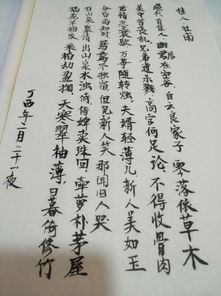 佳人 杜甫
绝代有佳人 幽居在空谷 自云良家子 零落依草木
关中昔丧乱 兄弟遭杀戮 高官何足论 不得收骨肉
世情恶衰歇 万事随转烛 夫婿轻薄儿 新人美如玉
合昏尚知时 鸳鸯不独宿 但见新人笑 那闻旧人哭
在山泉水清 出山泉水浊 侍婢卖珠回 牵萝补茅屋
摘花不插发 采柏动盈掬 天寒翠袖薄 日暮倚修竹
丁酉年二月二十一夜